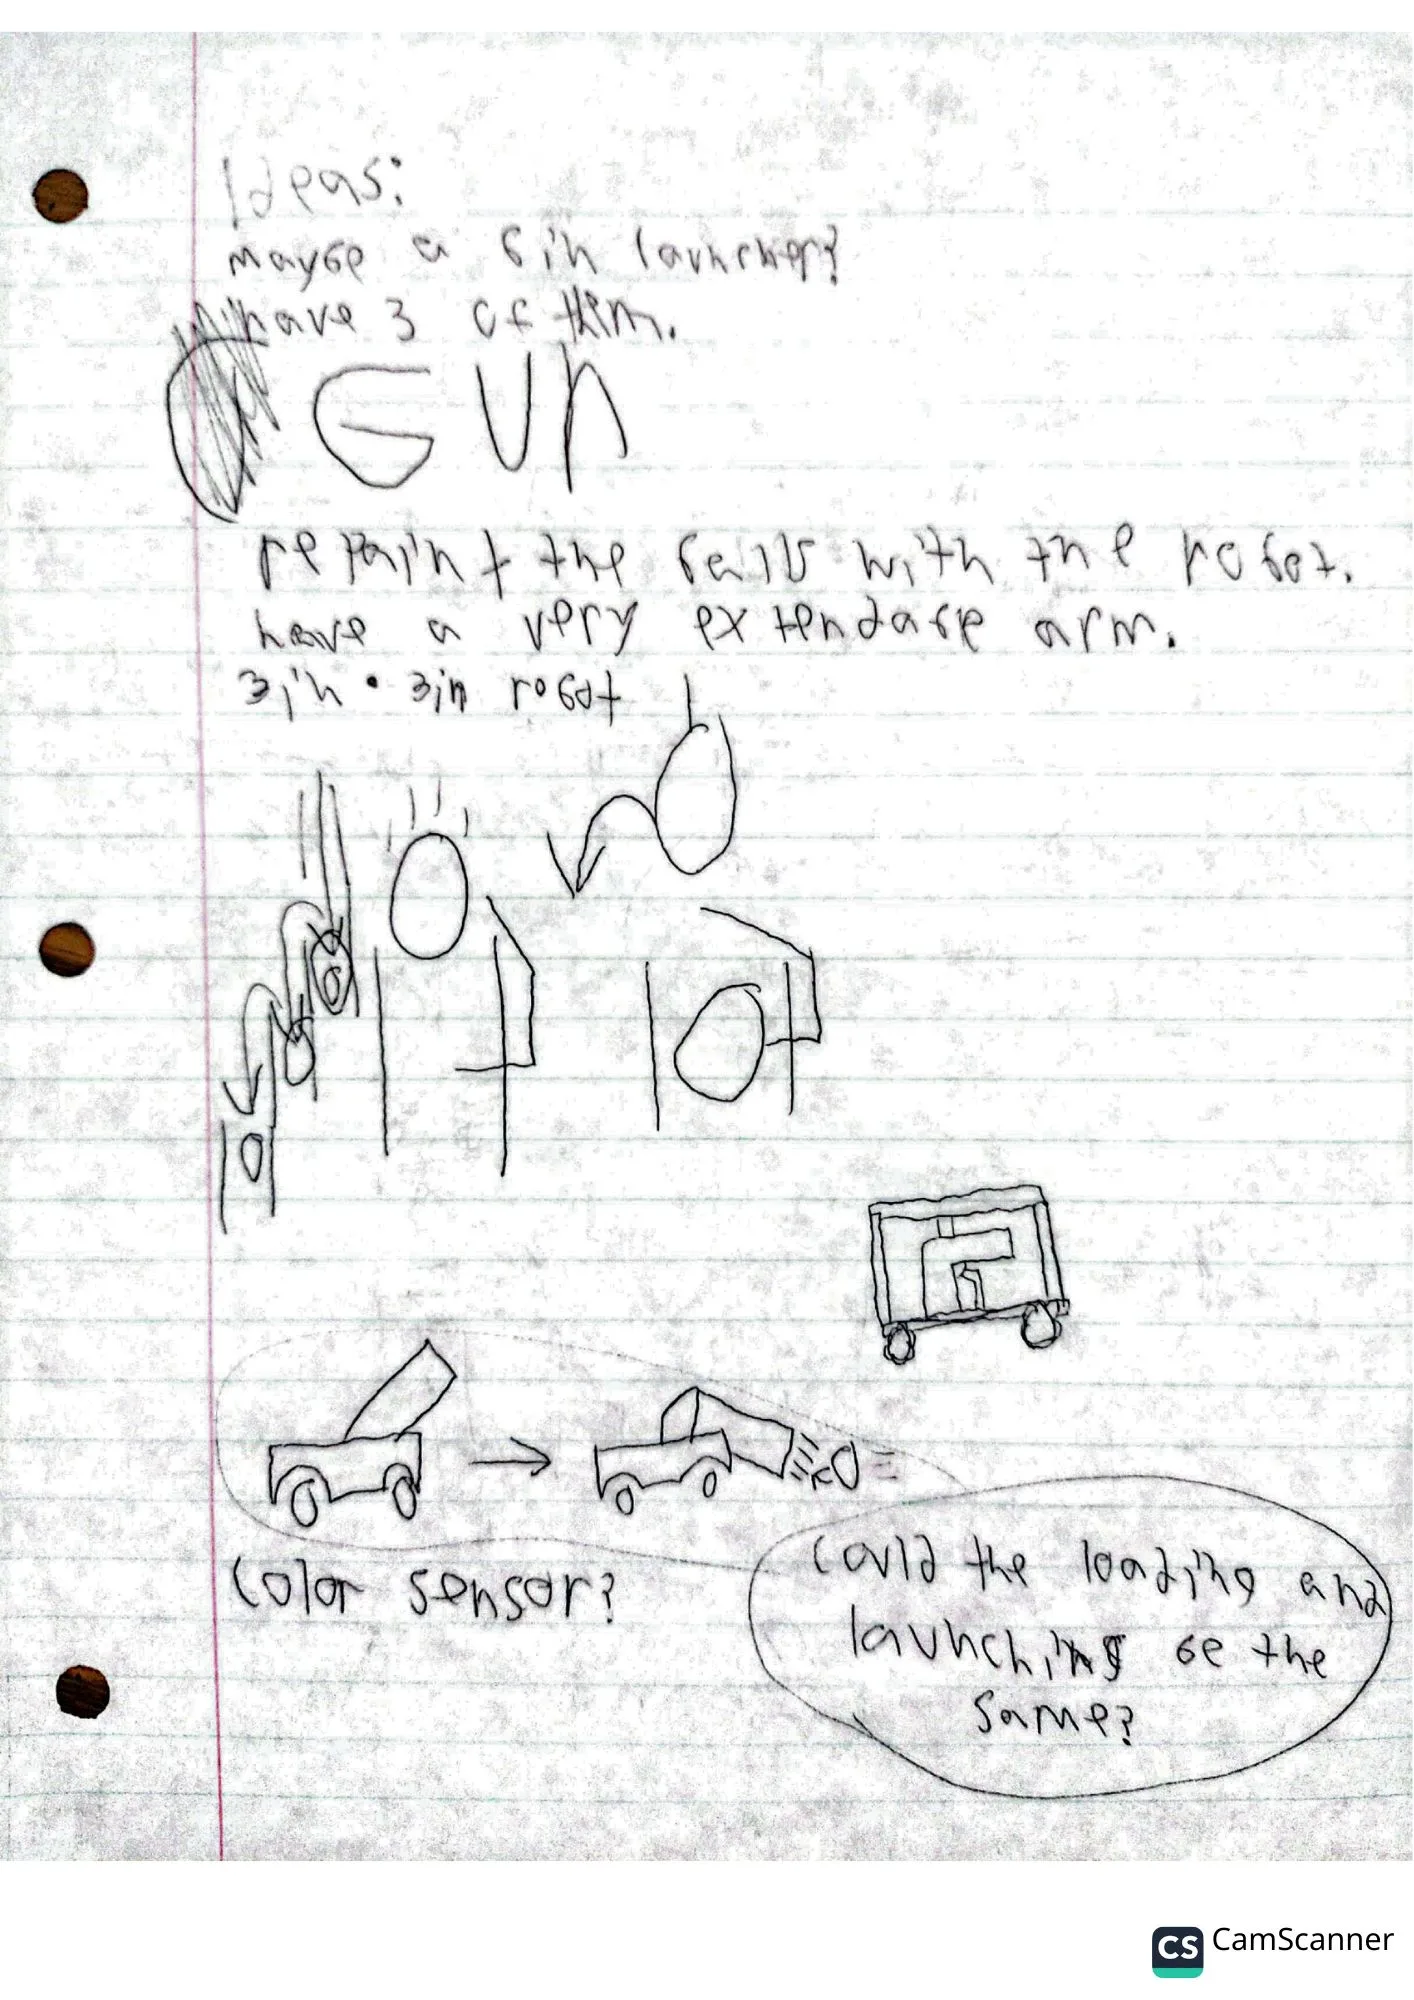 Ideas:
maybe a 6in launcher?
have 3 of them.
GUN
repaint the balls with the robot.
have a very extendable arm.
3in • 3in robot
Color sensor?
Could the loading and
launching be the
same?
CS CamScanner